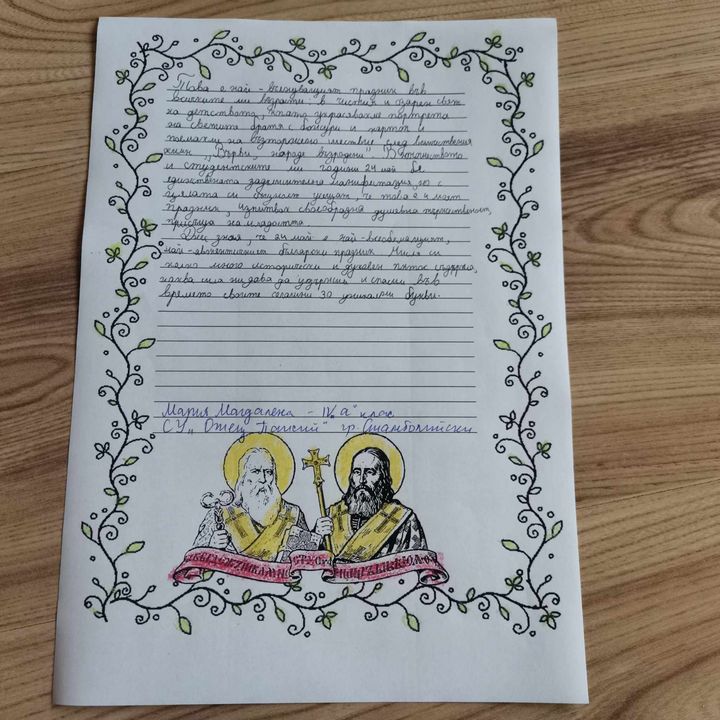 Това е най-вълнуващият празник във
всичките ми възрасти: в чистия и озарен свят
на детството, когато украсявахме портрета
на светите братя с божури и хартия и
поемахме на възторжено шествие след величествения
химн „Върви, народе възродени". В юношеството
и студентските ми години 24 май бе
единствената задължителна манифестация, но с
душата си винаги усещах, че това е и моят
празник, изпитвах своеобразна душевна тържественост,
присъща на младостта.
Днес зная, че 24 май е най-всеобемащият,
най-автентичният български празник. Мисля си
колко много исторически и духовен пятък съдържа,
каква сила ни дава да удържиш и спасиш във
времето своите седалищни 30 уникални букви.
Мария Магдалена - IV „а" клас
СУ „Отец Паисий" гр. Стамболийски